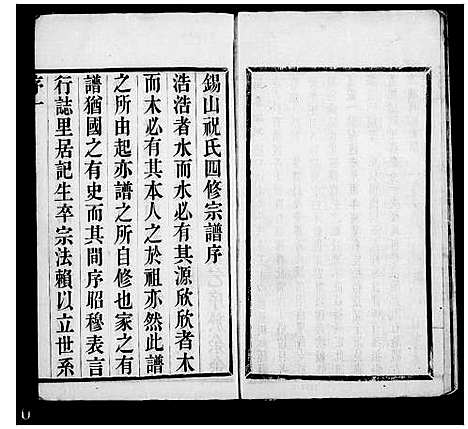 錫山祝氏四修宗譜序
浩浩者水而水必有其源欣欣者木
而木必有其本人之於祖亦然此譜
之所由起亦譜之所自修也家之有
譜猶國之有史而其間序昭穆表言
行誌里居記生卒宗法賴以立世系
序一